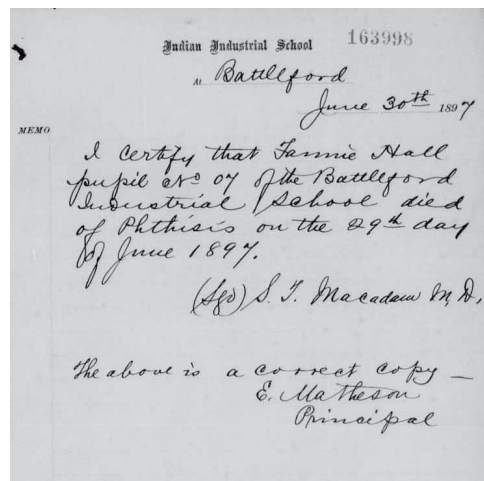 Indian Industrial School 163998
At Battleford
June 30th 1897
MEMO
I certify that Fannie Hall
pupil No 07 of the Battleford
Industrial School died
of Phthisis on the 29th day
of June 1897.
(Sgd) S. T. Macadam M.D.
The above is a correct copy —
E. Matheson
Principal